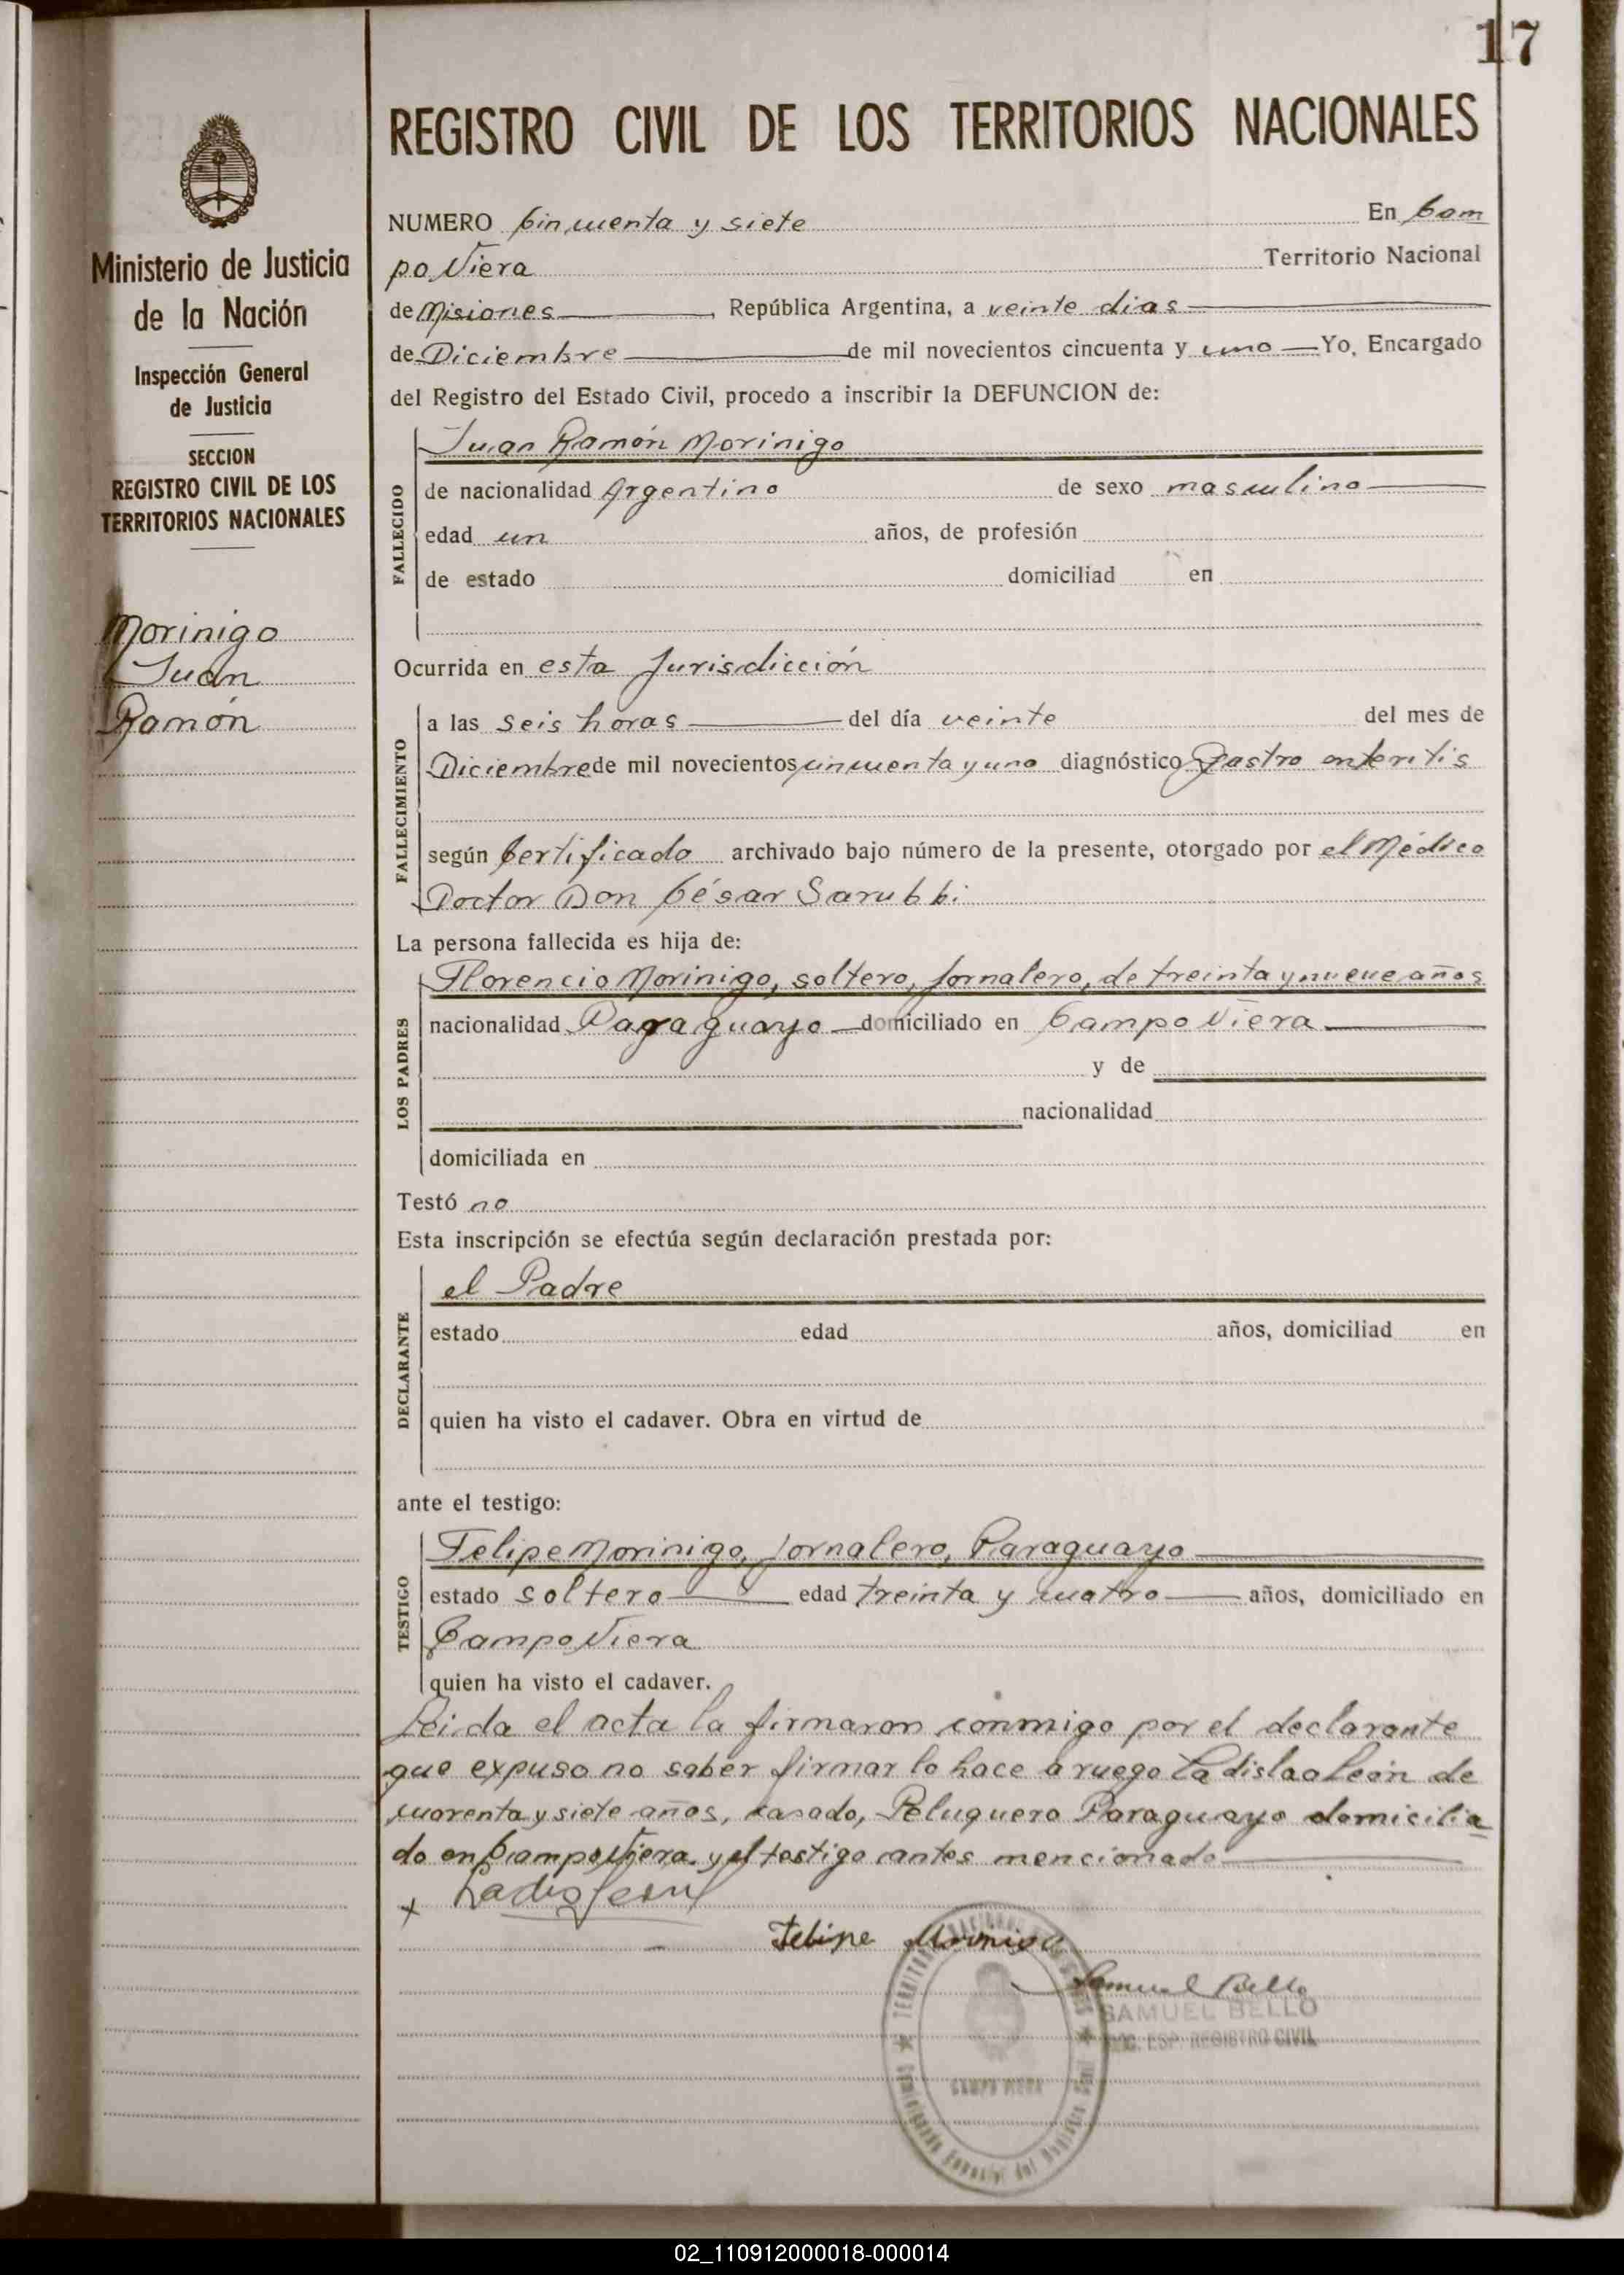 17
REGISTRO CIVIL DE LOS TERRITORIOS NACIONALES
Ministerio de Justicia
de la Nación
Inspección General
de Justicia
SECCION
REGISTRO CIVIL DE LOS
TERRITORIOS NACIONALES
Morinigo
Juan
Ramón
NUMERO Cincuenta y siete En Cam
po Viera Territorio Nacional
de Misiones, República Argentina, a veinte dias
de Diciembre de mil novecientos cincuenta y uno Yo, Encargado
del Registro del Estado Civil, procedo a inscribir la DEFUNCION de:
FALLECIDO
Juan Ramón Morinigo
de nacionalidad Argentino de sexo masculino
edad un años, de profesión
de estado domiciliad en
Ocurrida en esta Jurisdicción
FALLECIMIENTO
a las seis horas del día veinte del mes de
Diciembre de mil novecientos cincuenta y uno diagnóstico Gastro enteritis
según Certificado archivado bajo número de la presente, otorgado por el Médico
Doctor Don César Sarubbi
La persona fallecida es hija de:
LOS PADRES
Florencio Morinigo, soltero, Jornalero, de treinta y nueve años
nacionalidad Paraguayo domiciliado en Campo Viera
y de
nacionalidad
domiciliada en
Testó no
Esta inscripción se efectúa según declaración prestada por:
DECLARANTE
el Padre
estado edad años, domiciliad en
quien ha visto el cadaver. Obra en virtud de
ante el testigo:
TESTIGO
Felipe Morinigo, Jornalero, Paraguayo
estado soltero edad treinta y cuatro años, domiciliado en
Campo Viera
quien ha visto el cadaver.
Leida el acta la firmaron conmigo por el declarante
que expuso no saber firmar lo hace a ruego Ladislao León de
cuarenta y siete años, casado, Peluquero Paraguayo domicilia
do en Campo Viera y el testigo antes mencionado
+ Ladis León
Felipe Morinigo
Samuel Bello
SAMUEL BELLO
ENC. ESP. REGISTRO CIVIL
CAMPO VIERA
02_110912000018-000014